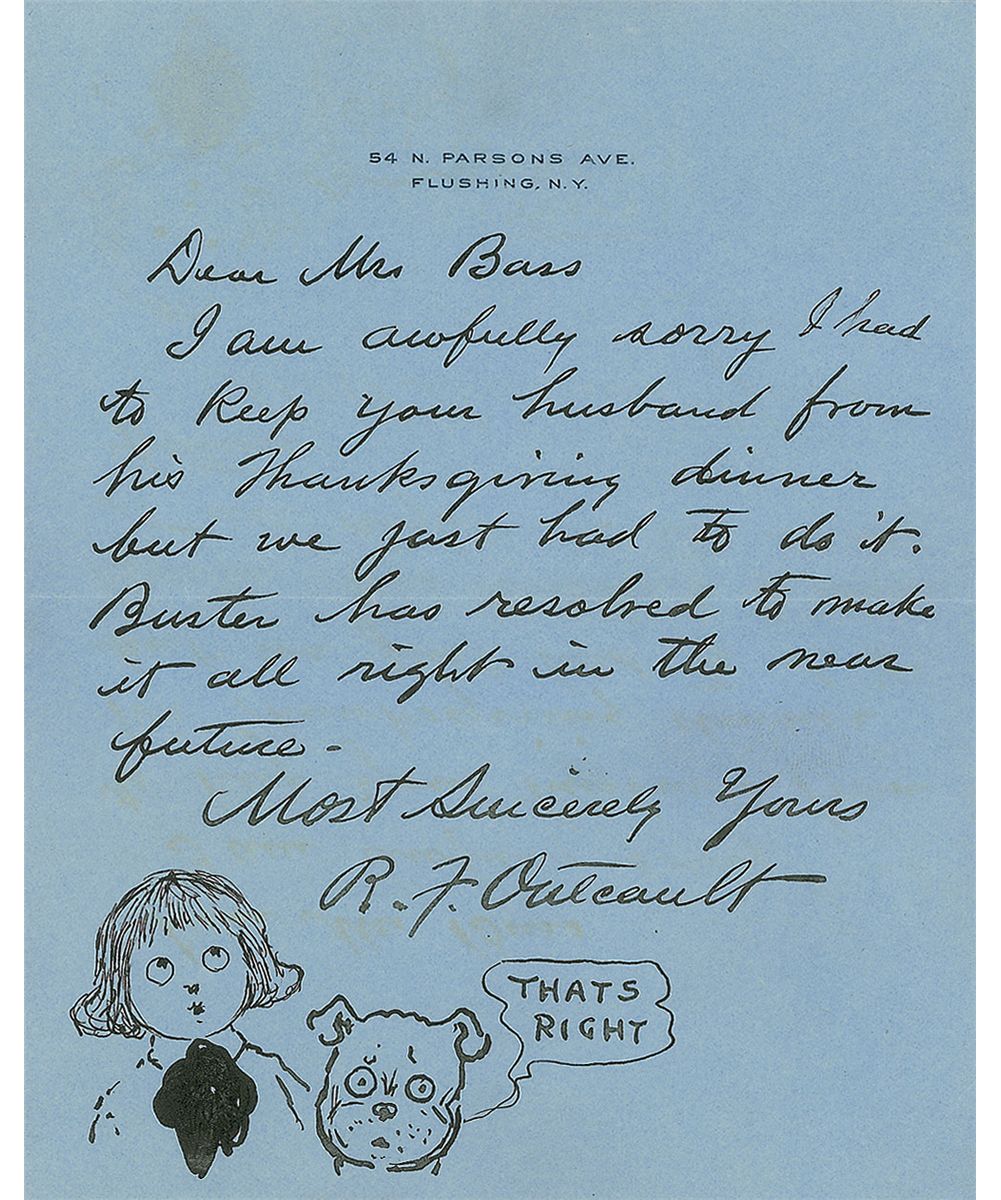 54 N. PARSONS AVE.
FLUSHING, N.Y.
Dear Mrs Bass
I am awfully sorry I had
to keep your husband from
his Thanksgiving dinner
but we just had to do it.
Buster has resolved to make
it all right in the near
future -
Most Sincerely Yours
R. F. Outcault
THATS
RIGHT